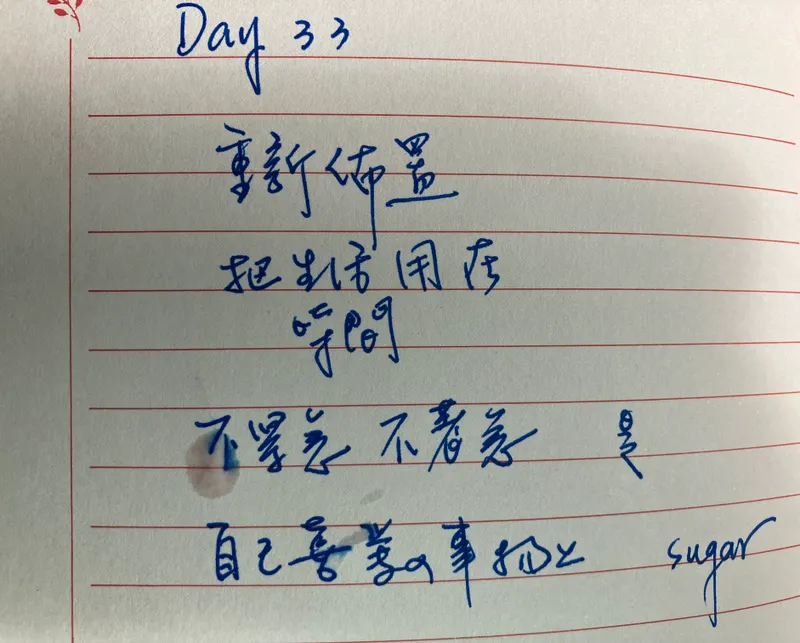 Day 33
重新佈置
把生活用在
等閒
不緊急 不著急 是
自己喜歡的事物上 sugar